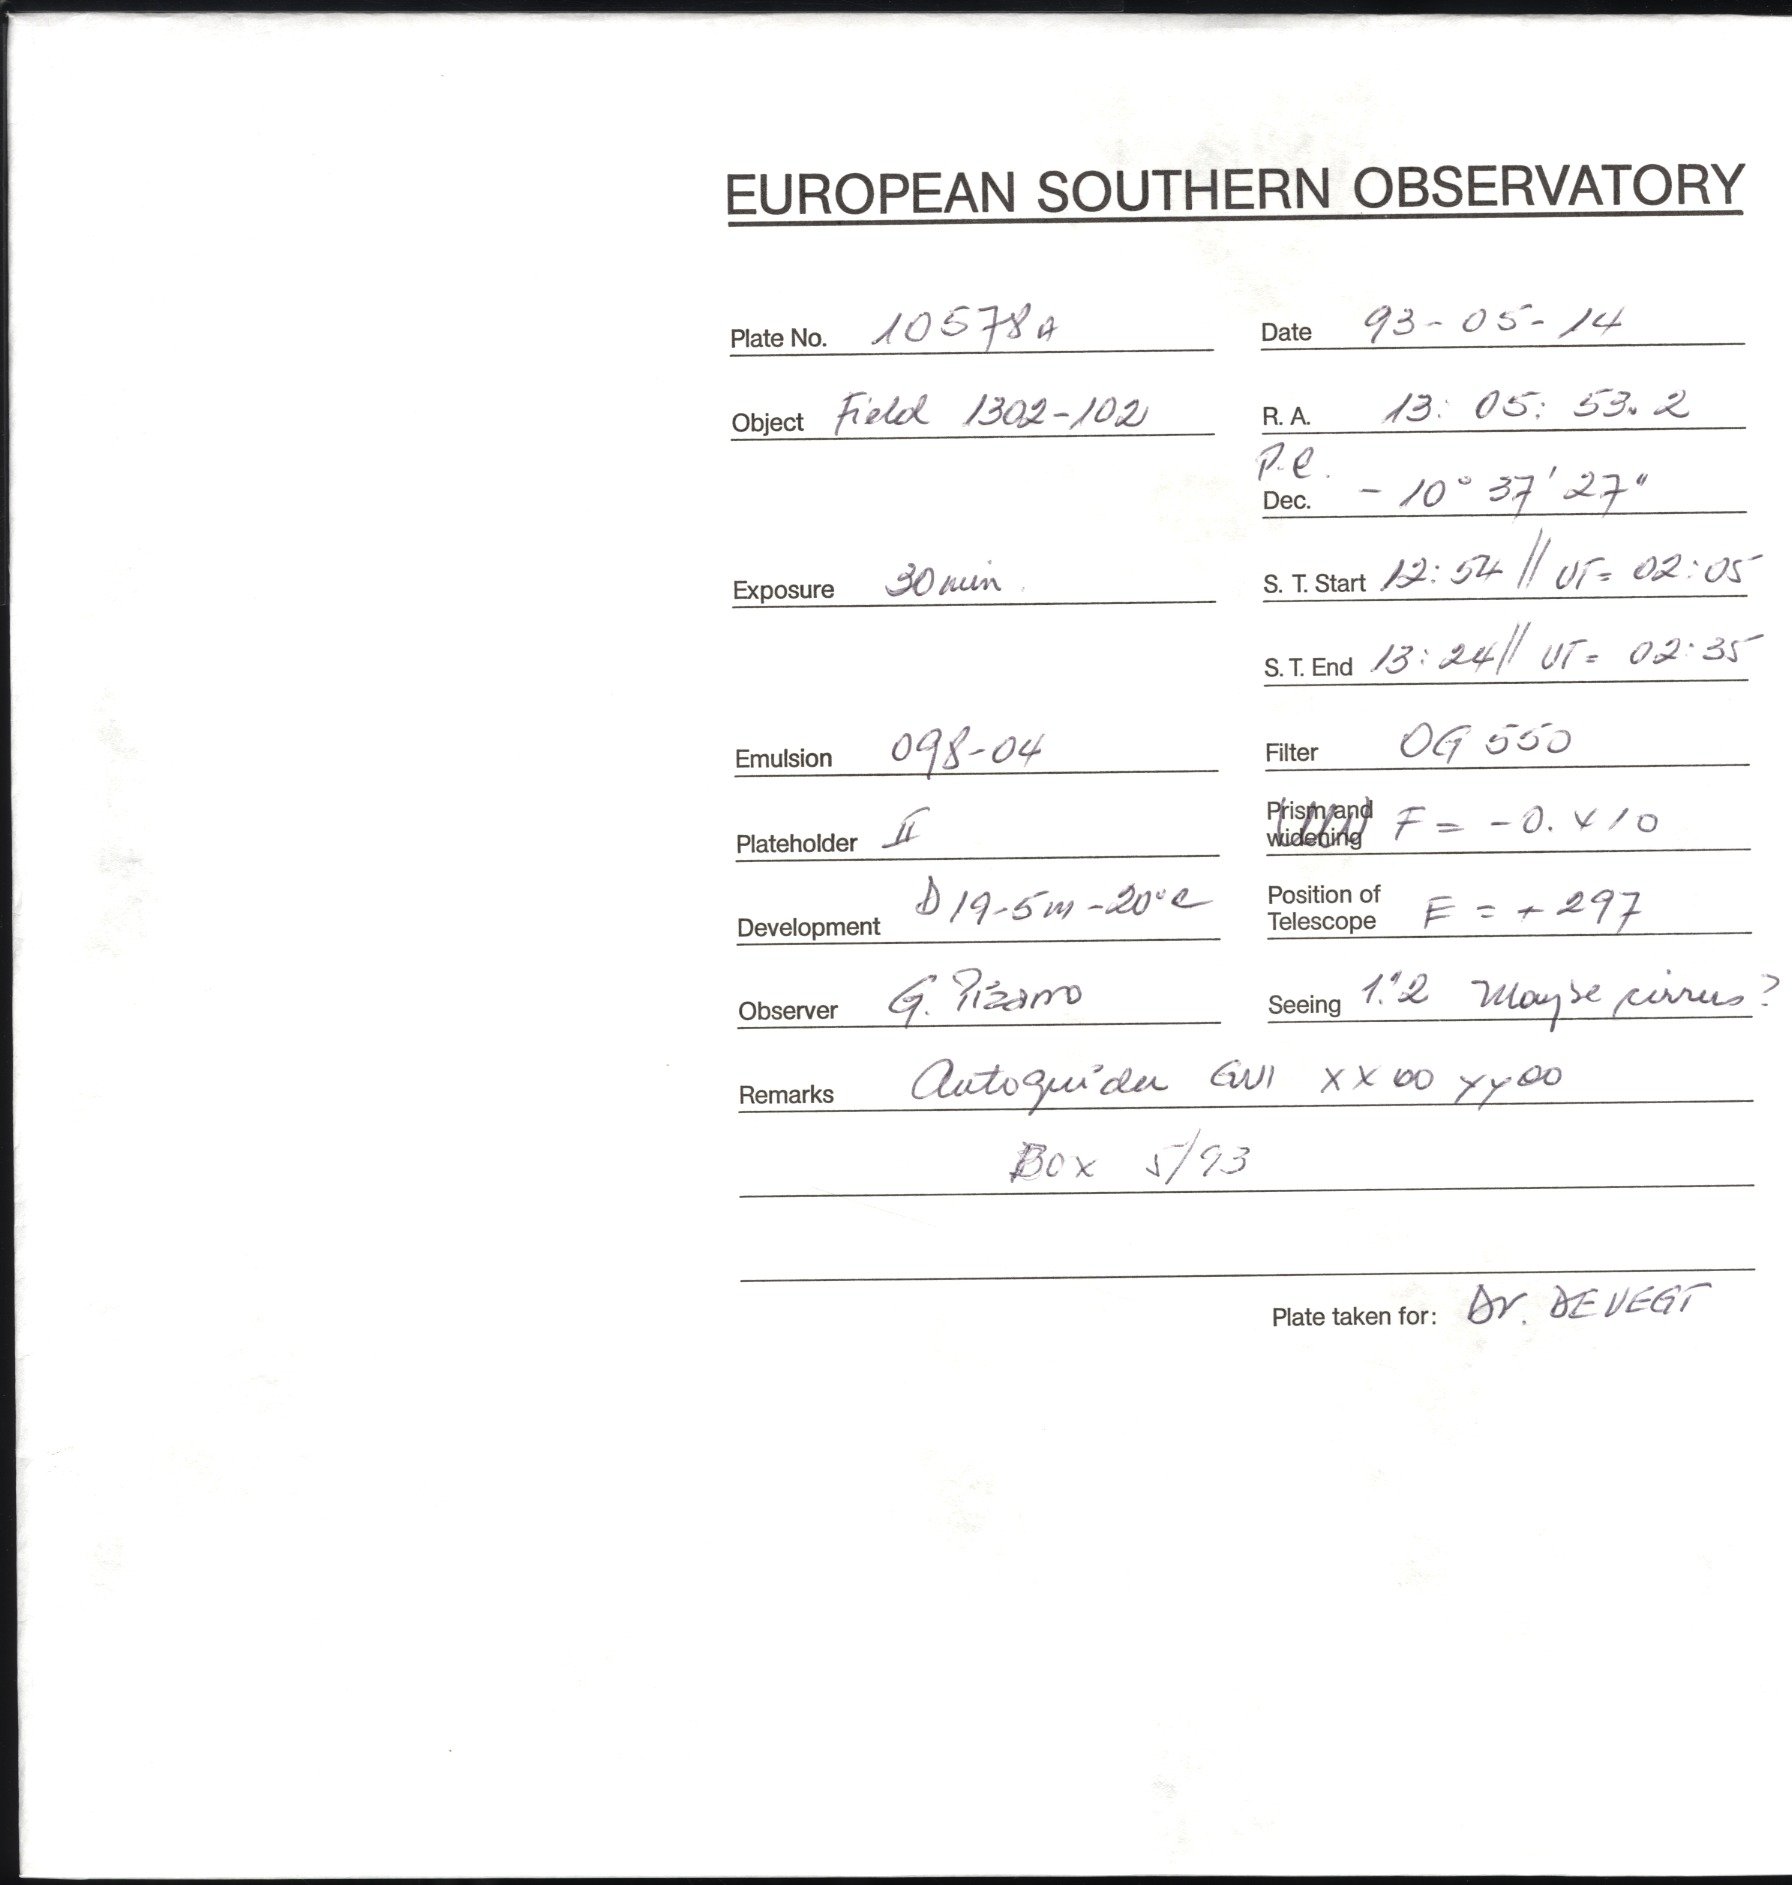 EUROPEAN SOUTHERN OBSERVATORY
Plate No. 10578A Date 93-05-14
Object Field 1302-102 R. A. 13: 05: 53.2
P.C.
Dec. - 10° 37' 27"
Exposure 30 min. S. T. Start 12:54 // UT= 02:05
S. T. End 13:24 // UT= 02:35
Emulsion 098-04 Filter OG 550
Plateholder II Prism and widening F = -0.410
Development D19-5m-20°C Position of Telescope E = +297
Observer G. Pizarro Seeing 1."2 Maybe cirrus?
Remarks Autoguider XX00 YY00
Box 5/93
Plate taken for: Dr. DE VEGT